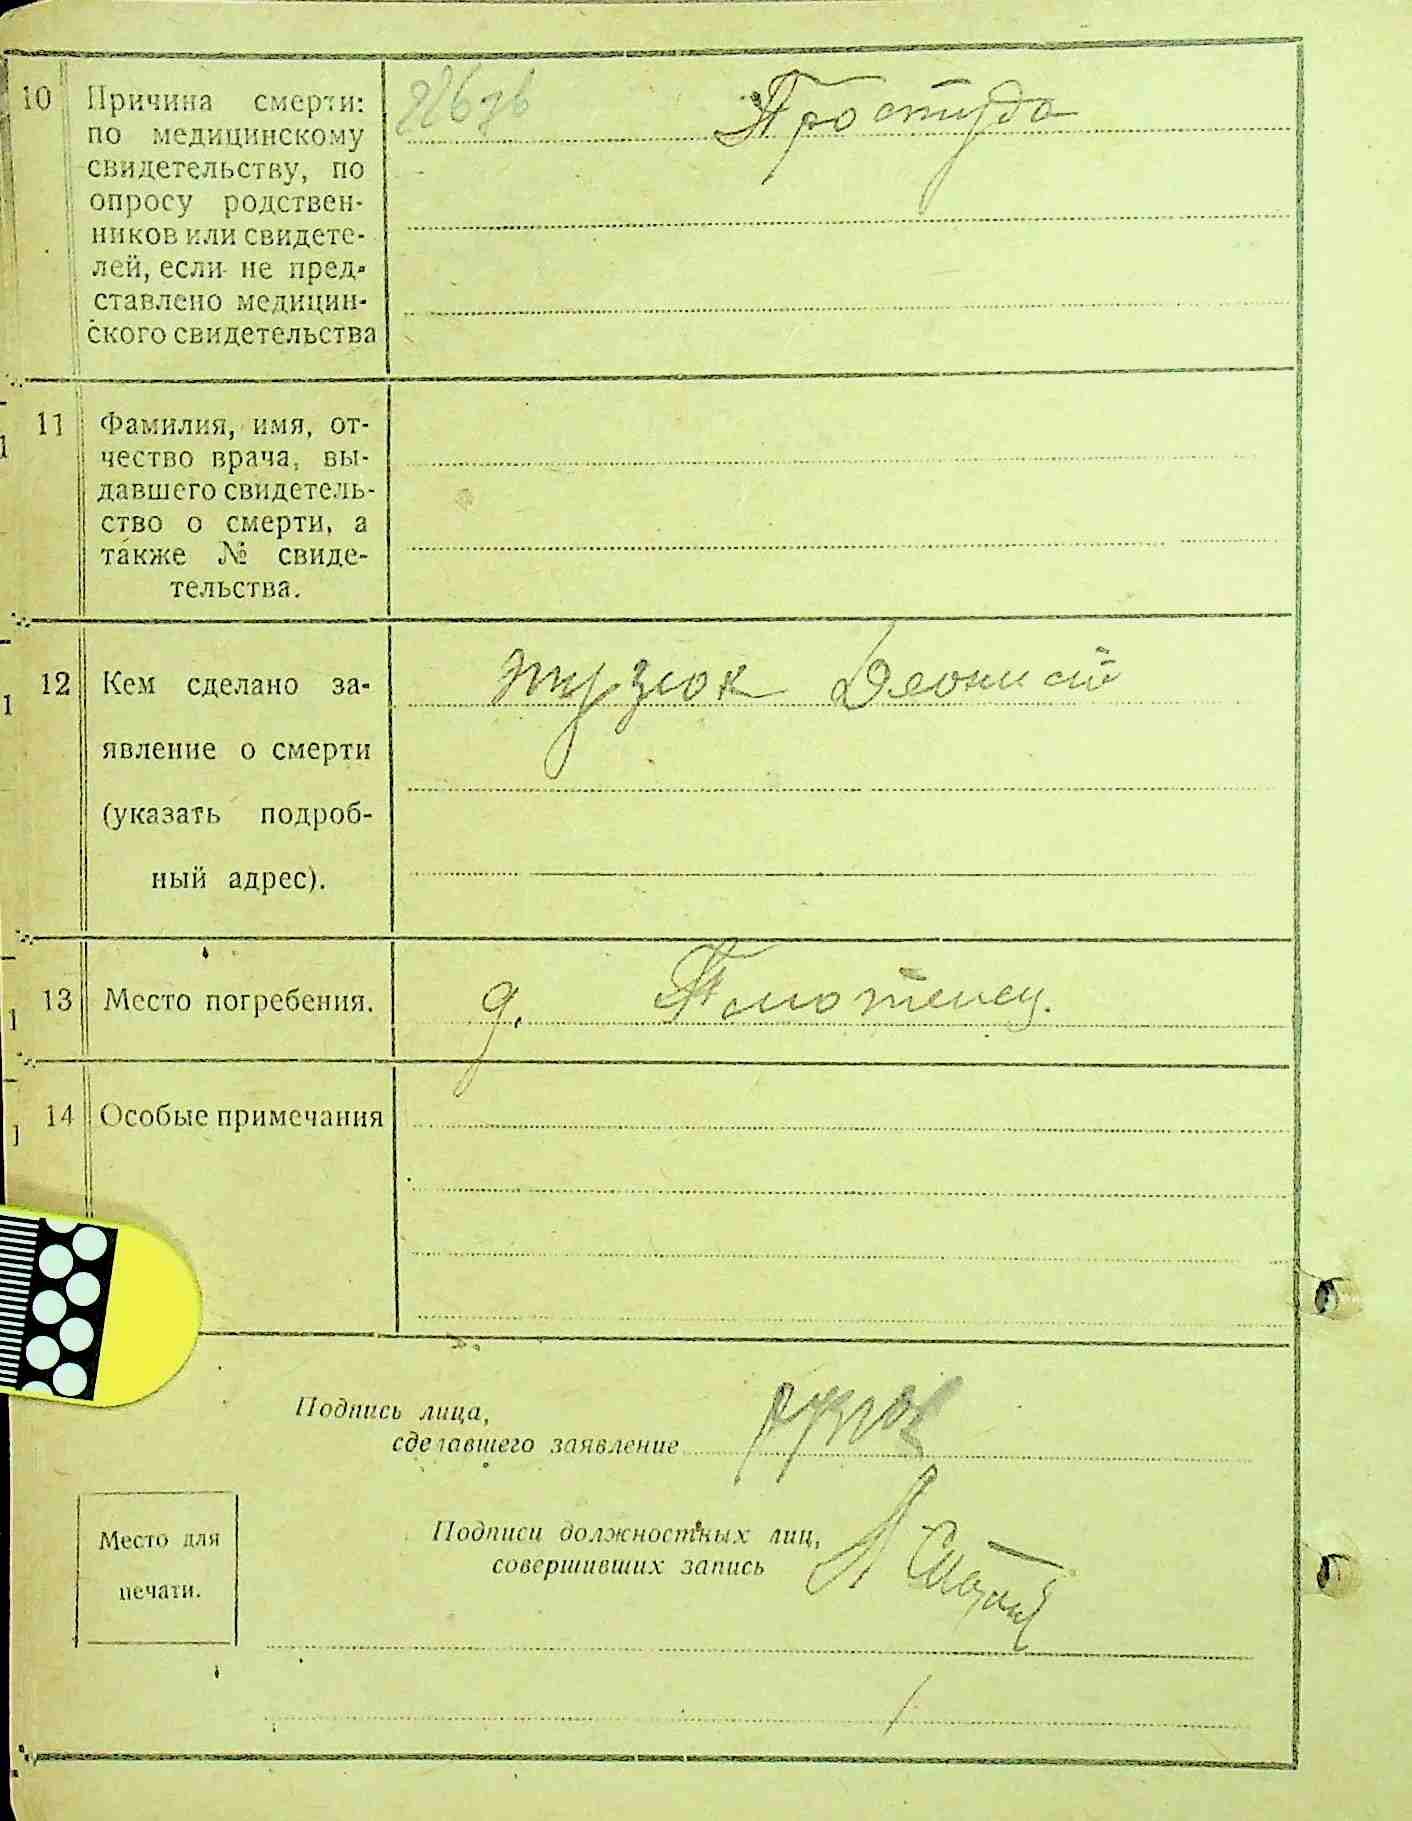 10 Причина смерти: Простуда
по медицинскому
свидетельству, по
опросу родствен-
ников или свидете-
лей, если не пред-
ставлено медицин-
ского свидетельства
11 Фамилия, имя, от-
чество врача, вы-
давшего свидетель-
ство о смерти, а
также № свиде-
тельства.
12 Кем сделано за-
явление о смерти
(указать подроб-
ный адрес).
13 Место погребения. д.
14 Особые примечания
Подпись лица,
сделавшего заявление
Место для
печати.
Подписи должностных лиц,
совершивших запись